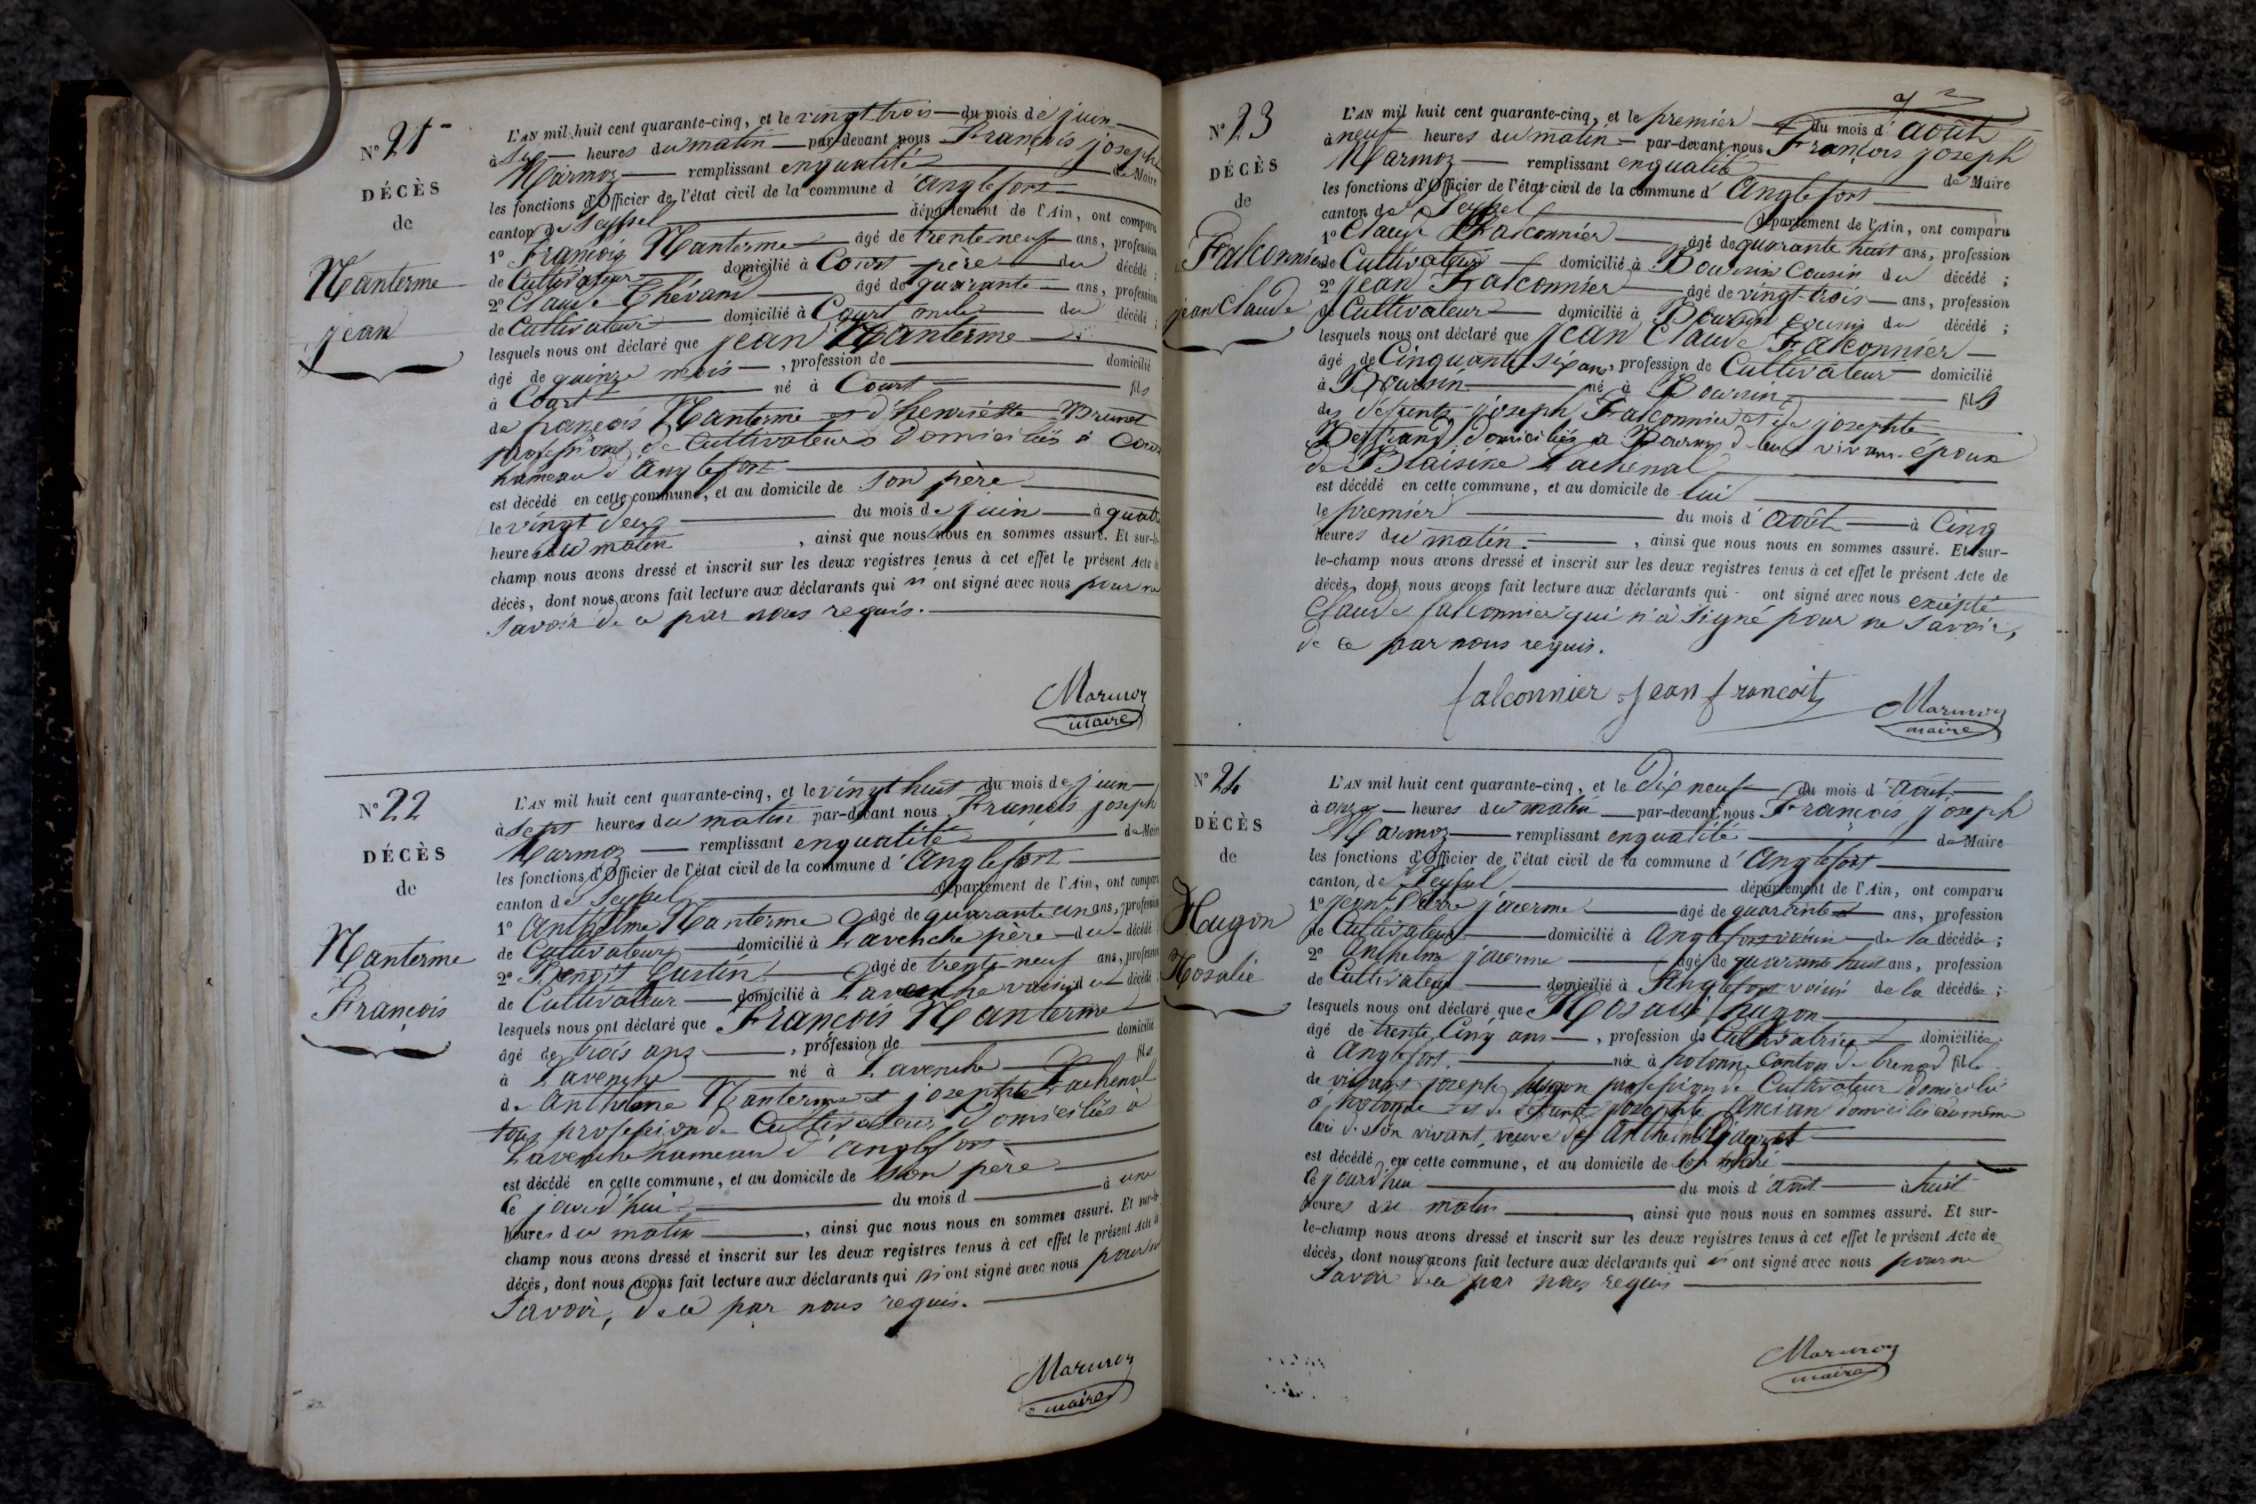 N° 21
DÉCÈS
de
Nanterme
jean
L'AN mil huit cent quarante-cinq, et le vingt trois du mois de juin
à six heures du matin par-devant nous François joseph
Marmoz remplissant en qualité de Maire
les fonctions d'Officier de l'état civil de la commune d'Anglefort
canton de Seyssel département de l'Ain, ont comparu
1° François Nanterme âgé de trente neuf ans, profession
de Cultivateur domicilié à Court père du décédé ;
2° Claude Thévand âgé de quarante ans, profession
de Cultivateur domicilié à Court du décédé ;
lesquels nous ont déclaré que jean Nanterme
âgé de quinze mois, profession de domicilié
à Court né à Court fils
de françois Nanterme et d'henriette Brunet
professions de Cultivateurs domiciliés à Court
hameau d'anglefort
est décédé en cette commune, et au domicile de son père
le vingt deux du mois de juin à quatre
heures du matin, ainsi que nous nous en sommes assuré. Et sur-le-
champ nous avons dressé et inscrit sur les deux registres tenus à cet effet le présent Acte de
décès, dont nous avons fait lecture aux déclarants qui n'ont signé avec nous pour ne
savoir de ce par nous requis.
Marmoz
maire
N° 22
DÉCÈS
de
Nanterme
François
L'AN mil huit cent quarante-cinq, et le vingt huit du mois de juin
à sept heures du matin par-devant nous François joseph
Marmoz remplissant en qualité de Maire
les fonctions d'Officier de l'état civil de la commune d'Anglefort
canton de Seyssel département de l'Ain, ont comparu
1° Anthelme Nanterme âgé de quarante un ans, profession
de Cultivateur domicilié à Lavenche père du décédé
2° Benoit Gustin âgé de trente-neuf ans, profession
de Cultivateur domicilié à Lavenche voisin du décédé
lesquels nous ont déclaré que François Nanterme
âgé de trois ans, profession de domicilié
à Lavenche né à Lavenche fils
de Anthelme Nanterme et josephte Lachenal
tous profession de Cultivateur domiciliés à
Lavenche hameau d'anglefort
est décédé en cette commune, et au domicile de son père
le jourd'hui du mois d à une
heures du matin, ainsi que nous nous en sommes assuré. Et sur-le-
champ nous avons dressé et inscrit sur les deux registres tenus à cet effet le présent Acte de
décès, dont nous avons fait lecture aux déclarants qui n'ont signé avec nous pour ne
savoir, de ce par nous requis.
Marmoz
maire
N° 23
DÉCÈS
de
Falconnier
jean Claude
L'AN mil huit cent quarante-cinq, et le premier du mois d'août
à neuf heures du matin par-devant nous François joseph
Marmoz remplissant en qualité de Maire
les fonctions d'Officier de l'état civil de la commune d'Anglefort
canton de Seyssel département de l'Ain, ont comparu
1° Claude Falconnier âgé de quarante huit ans, profession
de Cultivateur domicilié à Boursin Cousin du décédé ;
2° jean Falconnier âgé de vingt-trois ans, profession
de Cultivateur domicilié à Boursin cousin du décédé ;
lesquels nous ont déclaré que jean Claude Falconnier
âgé de Cinquante six ans, profession de Cultivateur domicilié
à Boursin né à Boursin fils
des défunts joseph Falconnier et de josephte
domiciliés à Boursin de leur vivant époux
de Blaisine Lachenal
est décédé en cette commune, et au domicile de lui
le premier du mois d'août à Cinq
heures du matin, ainsi que nous nous en sommes assuré. Et sur-
le-champ nous avons dressé et inscrit sur les deux registres tenus à cet effet le présent Acte de
décès, dont nous avons fait lecture aux déclarants qui ont signé avec nous excépté
Claude falconnier qui n'a signé pour ne savoir,
de ce par nous requis.
falconnier jean francoit
Marmoz
maire
N° 24
DÉCÈS
de
Hugon
Rosalie
L'AN mil huit cent quarante-cinq, et le Dix neuf du mois d'août
à onze heures du matin par-devant nous François joseph
Marmoz remplissant en qualité de Maire
les fonctions d'Officier de l'état civil de la commune d'Anglefort
canton de Seyssel département de l'Ain, ont comparu
1° jean Pierre jacerme âgé de quarante ans, profession
de Cultivateur domicilié à Anglefort voisin de la décédée ;
2° Anthelme jacerme âgé de quarante huit ans, profession
de Cultivateur domicilié à Anglefort voisin de la décédée ;
lesquels nous ont déclaré que Rosalie hugon
âgé de trente Cinq ans, profession de Cultivatrice domiciliée
à Anglefort née à hotonne Canton de brenod fille
de vivant joseph hugon profession de Cultivateur domicilié
à hotonne et de défunte josephte Ancian domiciliée au même
lieu de son vivant, veuve de Anthelme
est décédé en cette commune, et au domicile de son mari
le jourd'hui du mois d'août à huit
heures du matin, ainsi que nous nous en sommes assuré. Et sur-
le-champ nous avons dressé et inscrit sur les deux registres tenus à cet effet le présent Acte de
décès, dont nous avons fait lecture aux déclarants qui n'ont signé avec nous pour ne
savoir de ce par nous requis
Marmoz
maire